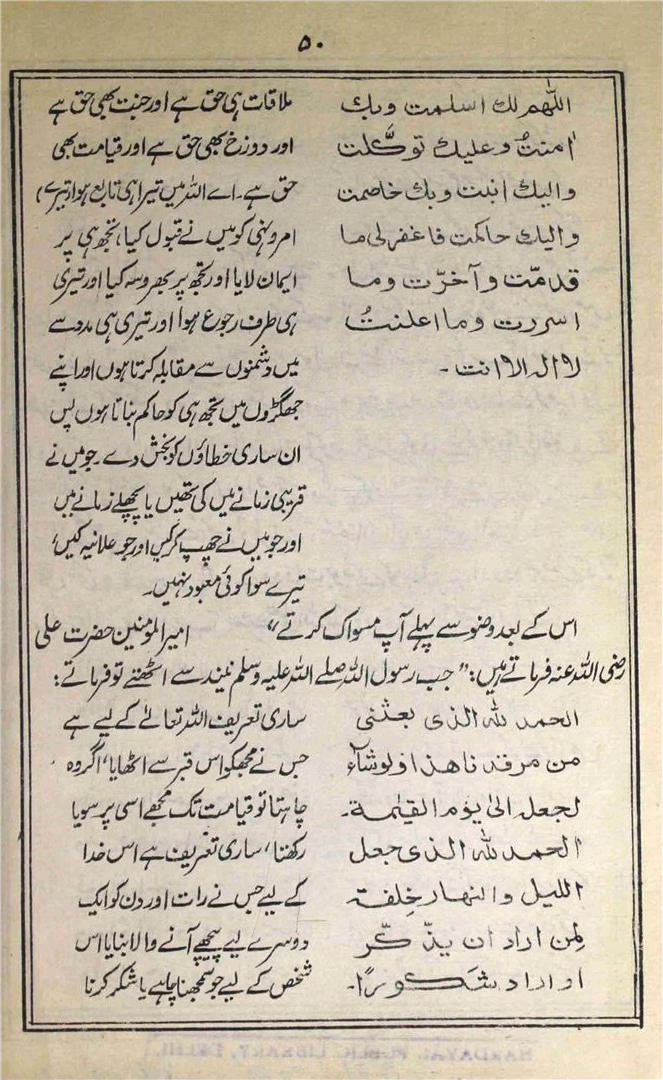 ۵۰
اللّٰھم لك اسلمت وبك
اٰمنتُ وعلیك توكّلت
والیك انبت وبك خاصمت
والیك حاکمت فاغفرلی ما
قدمّت وآخرّت وما
اسررت وما اعلنتُ
لا الہ الا انت۔
ملاقات ہی حق ہے اور جنت بھی حق ہے
اور دوزخ بھی حق ہے اور قیامت بھی
حق ہے۔ اے اللہ میں تیرا ہی تابع ہوا (تیرے)
امرونہی کو میں نے قبول کیا، تجھ ہی پر
ایمان لایا اور تجھ پر بھروسہ کیا اور تیری
ہی طرف رجوع ہوا اور تیری ہی مدد سے
میں دشمنوں سے مقابلہ کرتا ہوں اور اپنے
جھگڑوں میں تجھ ہی کو حاکم بناتا ہوں پس
ان ساری خطاؤں کو بخش دے۔ جو میں نے
قریبی زمانے میں کی تھیں یا پچھلے زمانے میں
اور جو میں نے چھپ کر کیں اور جو علانیہ کیں،
تیرے سوا کوئی معبود نہیں۔
اس کے بعد وضو سے پہلے آپ مسواک کرتے“ امیرالمؤمنین حضرت علی
رضی اللہ عنہ فرماتے ہیں: ”جب رسول اللہ صلے اللہ علیہ وسلم نیند سے اٹھتے تو فرماتے:
الحمد للہ الذی بعثنی
من مرقدنا ھذا ولوشآء
لجعل الیٰ یوم القیٰمة۔
الحمد للہ الذی جعل
اللیل والنھار خِلفة
لِمن اراد ان یذّکّر
او اراد شکورًا۔
ساری تعریف اللہ تعالےٰ کے لیے ہے
جس نے مجھکو اس قبر سے اٹھایا، اگر وہ
چاہتا تو قیامت تک مجھے اسی پر سویا
رکھتا، ساری تعریف ہے اس خدا
کے لیے جس نے رات اور دن کو ایک
دوسرے لیے پیچھے آنے والا بنایا اس
شخص کے لیے جو سمجھنا چاہے یا شکر کرنا
HARDAYAL PUBLIC LIBRARY, DELHI.